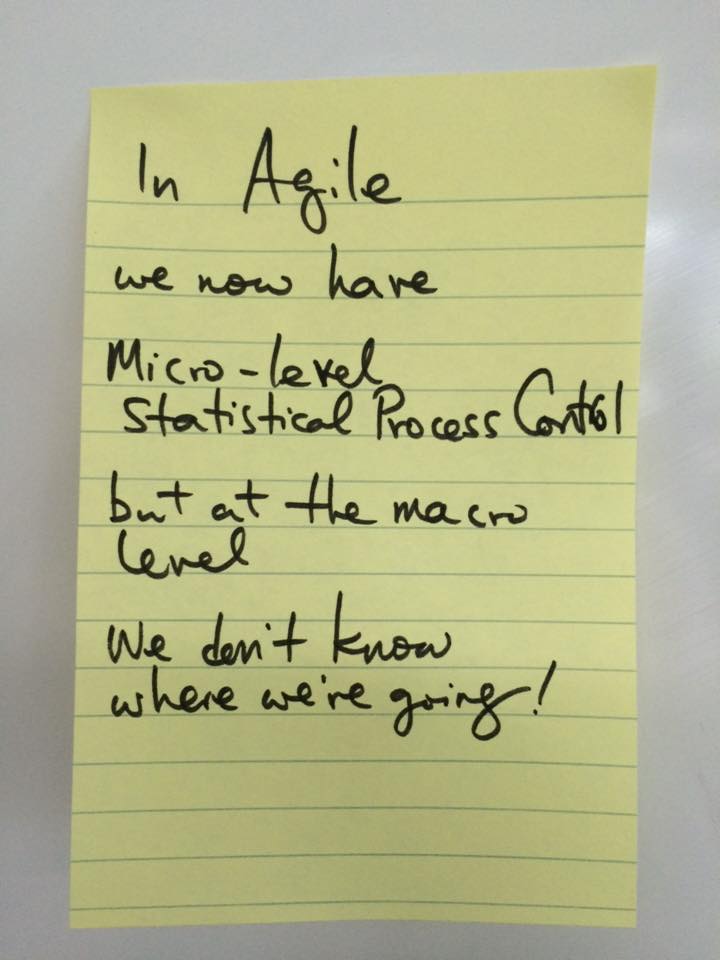 In Agile
we now have
Micro-level
Statistical Process Control
but at the macro
level
We don't know
where we're going!